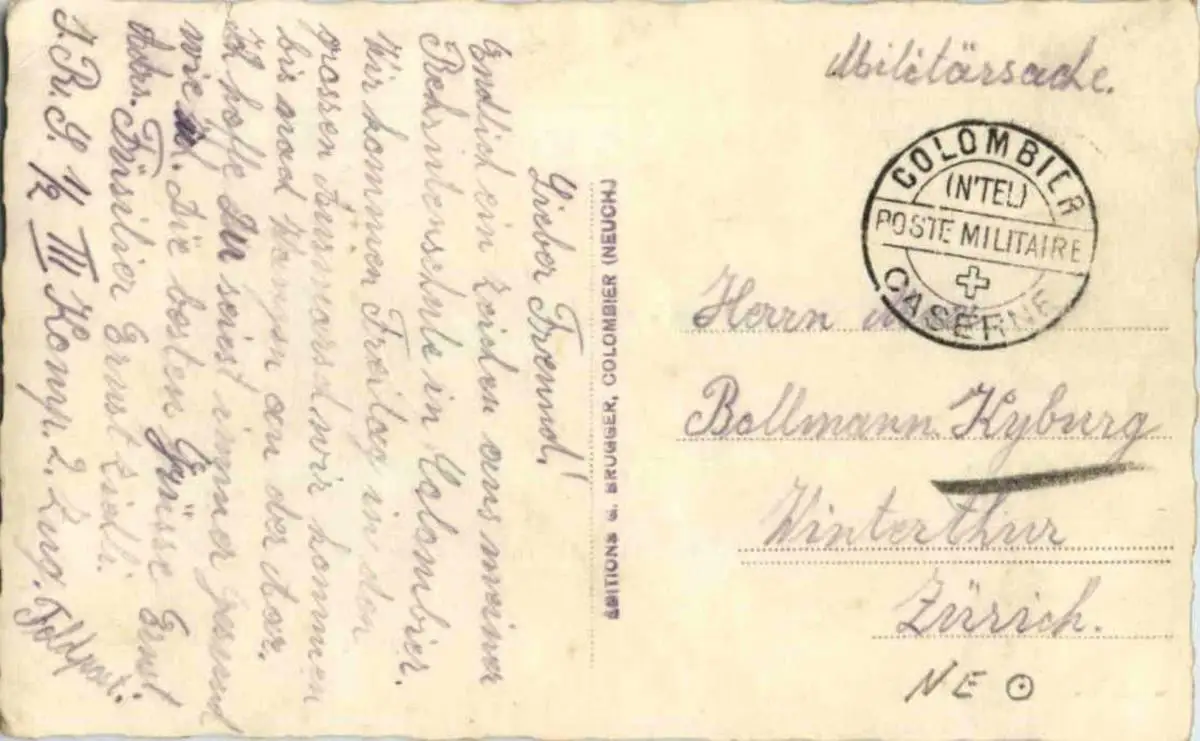 Militärsache.
COLOMBIER
(N'TEL)
POSTE MILITAIRE
CASERNE
Herrn
Bollmann Kyburg
Winterthur
Zürich.
NE
EDITIONS G. BRUGGER, COLOMBIER (NEUCH)
Lieber Freund!
Endlich ein Zeichen aus meiner
Rekrutenschule in Colombier.
Wir kommen Freitag in den
grossen Ausmarsch wir kommen
bis nach an der Aar.
Ich hoffe Du seiest immer gesund
wie ich. Die besten Grüsse Ernst
Adrs. Füsilier Ernst
I. R. S. 1/2 III Komp. 2. Zug. Feldpost.